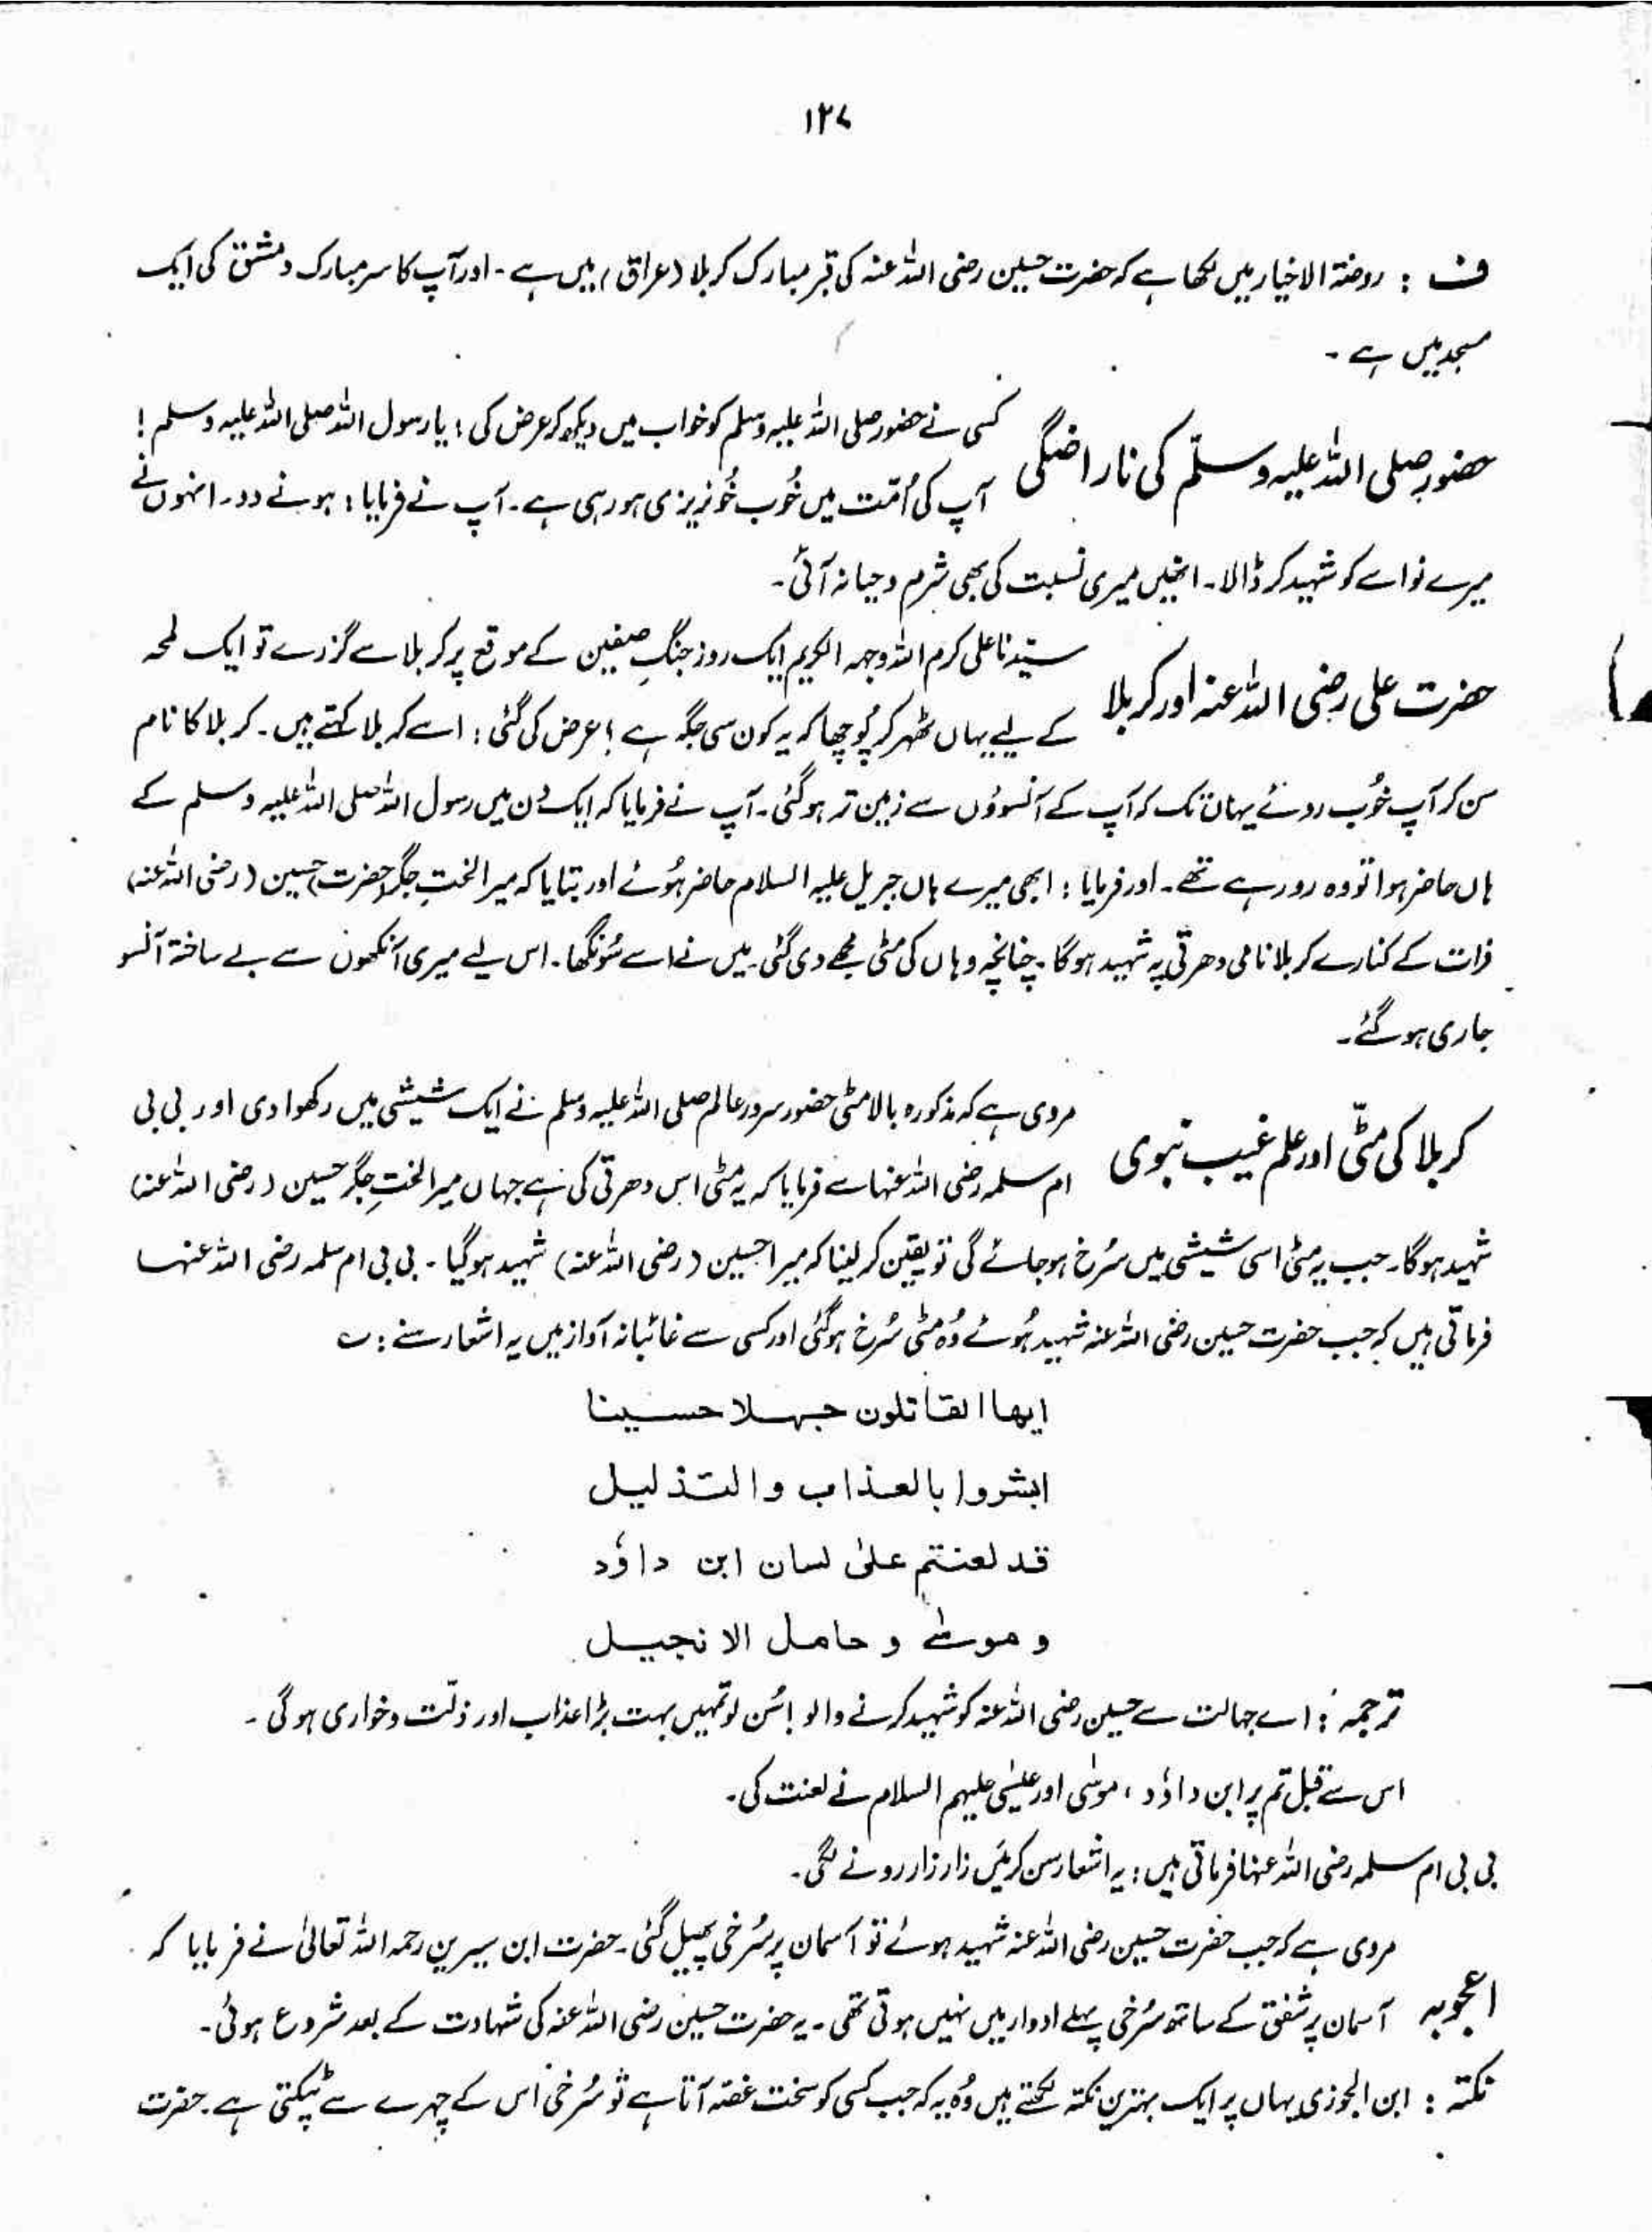 ۱۲۷
ف : روضۃ الاخیار میں لکھا ہے کہ حضرت حسین رضی اللہ عنہ کی قبر مبارک کربلا (عراق) میں ہے ۔ اور آپ کا سر مبارک دمشق کی ایک
مسجد میں ہے ۔
حضور صلی اللہ علیہ وسلّم کی ناراضگی
کسی نے حضور صلی اللہ علیہ وسلم کو خواب میں دیکھ کر عرض کی : یا رسول اللہ صلی اللہ علیہ وسلم !
آپ کی اُمّت میں خُوب خُونریزی ہو رہی ہے ۔ آپ نے فرمایا : ہونے دو ۔ انہوں نے
میرے نواسے کو شہید کر ڈالا ۔ انھیں میری نسبت کی بھی شرم و حیا نہ آئی ۔
حضرت علی رضی اللہ عنہ اور کربلا
سیّدنا علی کرم اللہ وجہہ الکریم ایک روز جنگِ صفین کے موقع پر کربلا سے گزرے تو ایک لمحہ
کے لیے یہاں ٹھہر کر پُوچھا کہ یہ کون سی جگہ ہے ؟ عرض کی گئی : اسے کربلا کہتے ہیں ۔ کربلا کا نام
سن کر آپ خُوب روئے یہاں تک کہ آپ کے آنسوؤں سے زمین تر ہو گئی ۔ آپ نے فرمایا کہ ایک دن میں رسول اللہ صلی اللہ علیہ وسلم کے
ہاں حاضر ہوا تو وہ رو رہے تھے ۔ اور فرمایا : ابھی میرے ہاں جبریل علیہ السلام حاضر ہُوئے اور بتایا کہ میرا لختِ جگر (حضرت) حسین (رضی اللہ عنہ)
فرات کے کنارے کربلا نامی دھرتی پہ شہید ہوگا ۔ چنانچہ وہاں کی مٹی مجھے دی گئی میں نے اسے سُونگھا ۔ اس لیے میری آنکھوں سے بے ساختہ آنسو
جاری ہو گئے ۔
کربلا کی مٹّی اور علم غیب نبوی
مروی ہے کہ مذکورہ بالا مٹی حضور سرور عالم صلی اللہ علیہ وسلم نے ایک شیشی میں رکھوا دی اور بی بی
ام سلمہ رضی اللہ عنہا سے فرمایا کہ یہ مٹی اس دھرتی کی ہے جہاں میرا لختِ جگر حسین (رضی اللہ عنہ)
شہید ہوگا ۔ جب یہ مٹی اسی شیشی میں سُرخ ہو جائے گی تو یقین کر لینا کہ میرا حسین (رضی اللہ عنہ) شہید ہو گیا ۔ بی بی ام سلمہ رضی اللہ عنہا
فرماتی ہیں کہ جب حضرت حسین رضی اللہ عنہ شہید ہُوئے وُہ مٹی سُرخ ہو گئی اور کسی سے غائبانہ آواز میں یہ اشعار سنے : ؎
ایھا القاتلون جہلا حسینا
ابشروا بالعذاب والتذلیل
قد لعنتم علیٰ لسان ابن داؤد
و موسٰے و حامل الانجیل
ترجمہ : اے جہالت سے حسین رضی اللہ عنہ کو شہید کرنے والو ! سُن لو تمہیں بہت بڑا عذاب اور ذلّت و خواری ہوگی ۔
اس سے قبل تم پر ابن داؤد ، موسٰی اور عیسٰی علیہم السلام نے لعنت کی ۔
بی بی ام سلمہ رضی اللہ عنہا فرماتی ہیں : یہ اشعار سن کر مَیں زار زار رونے لگی ۔
اعجوبہ
مروی ہے کہ جب حضرت حسین رضی اللہ عنہ شہید ہوئے تو آسمان پر سُرخی پھیل گئی ۔ حضرت ابن سیرین رحمہ اللہ تعالیٰ نے فرمایا کہ
آسمان پر شفق کے ساتھ سُرخی پہلے ادوار میں نہیں ہوتی تھی ۔ یہ حضرت حسین رضی اللہ عنہ کی شہادت کے بعد شروع ہوئی ۔
نکتہ : ابن الجوزی یہاں پر ایک بہترین نکتہ لکھتے ہیں وُہ یہ کہ جب کسی کو سخت غصّہ آتا ہے تو سُرخی اس کے چہرے سے ٹپکتی ہے ۔ حضرت